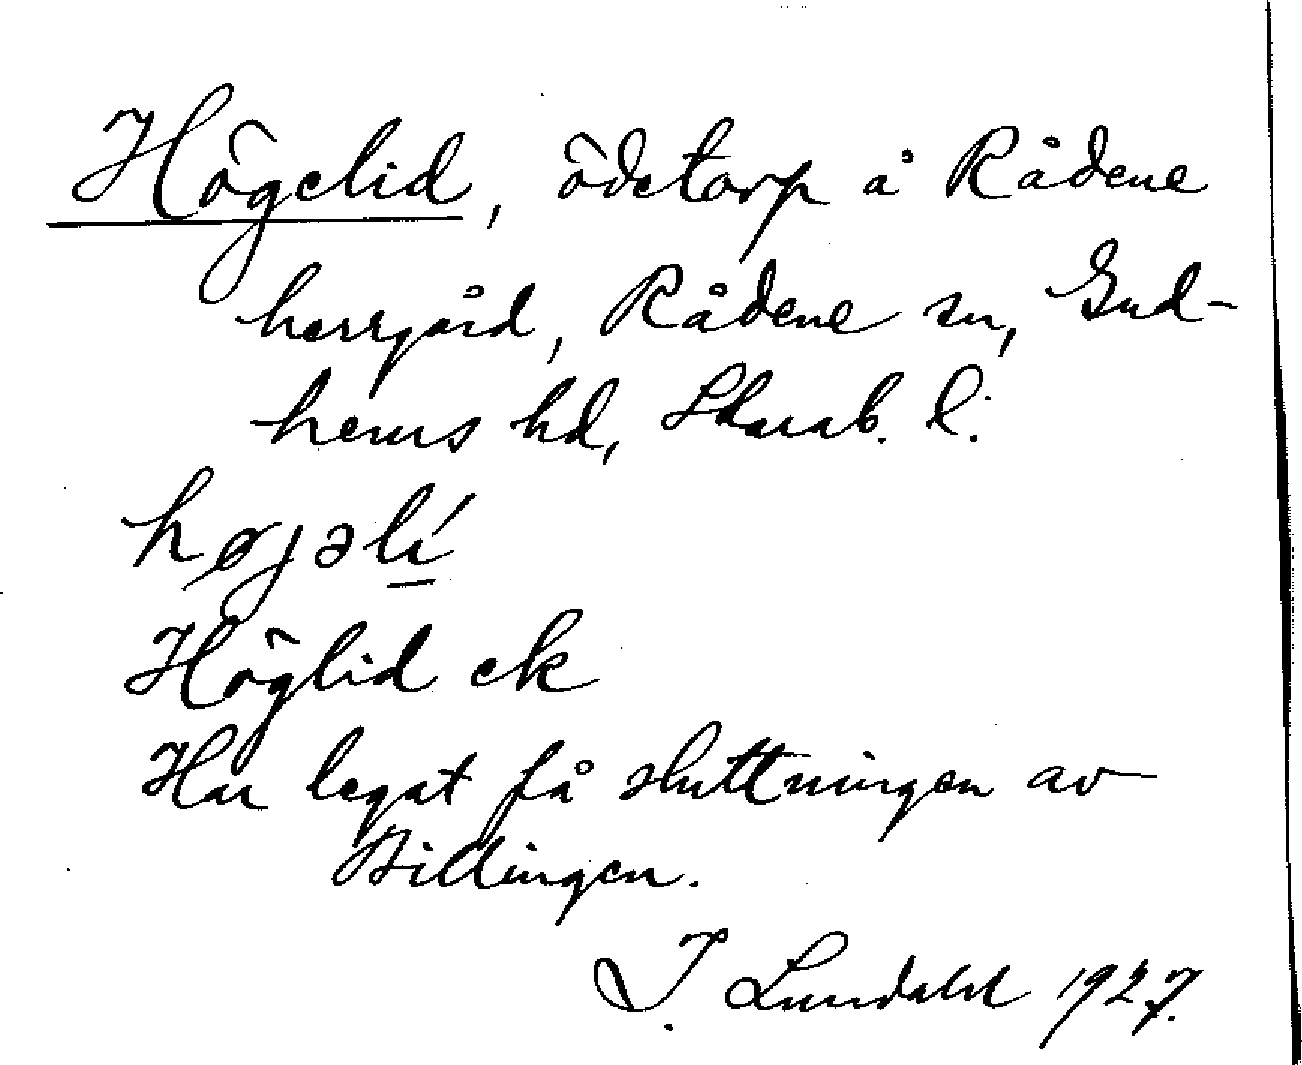 Högelid, ödetorp å Rådene
herrgård, Rådene sn, Gud-
hems hd, Skarab. l.
højəlí
Höglid ek
Har legat på sluttningen av
Billingen.
I. Lundahl 1927.